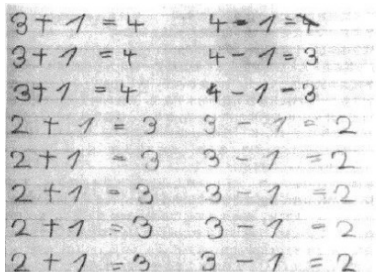 3 + 1 = 4 4 - 1 = 4
3 + 1 = 4 4 - 1 = 3
3 + 1 = 4 4 - 1 - 3
2 + 1 = 3 3 - 1 = 2
2 + 1 = 3 3 - 1 = 2
2 + 1 = 3 3 - 1 = 2
2 + 1 = 3 3 - 1 = 2
2 + 1 = 3 3 - 1 = 2